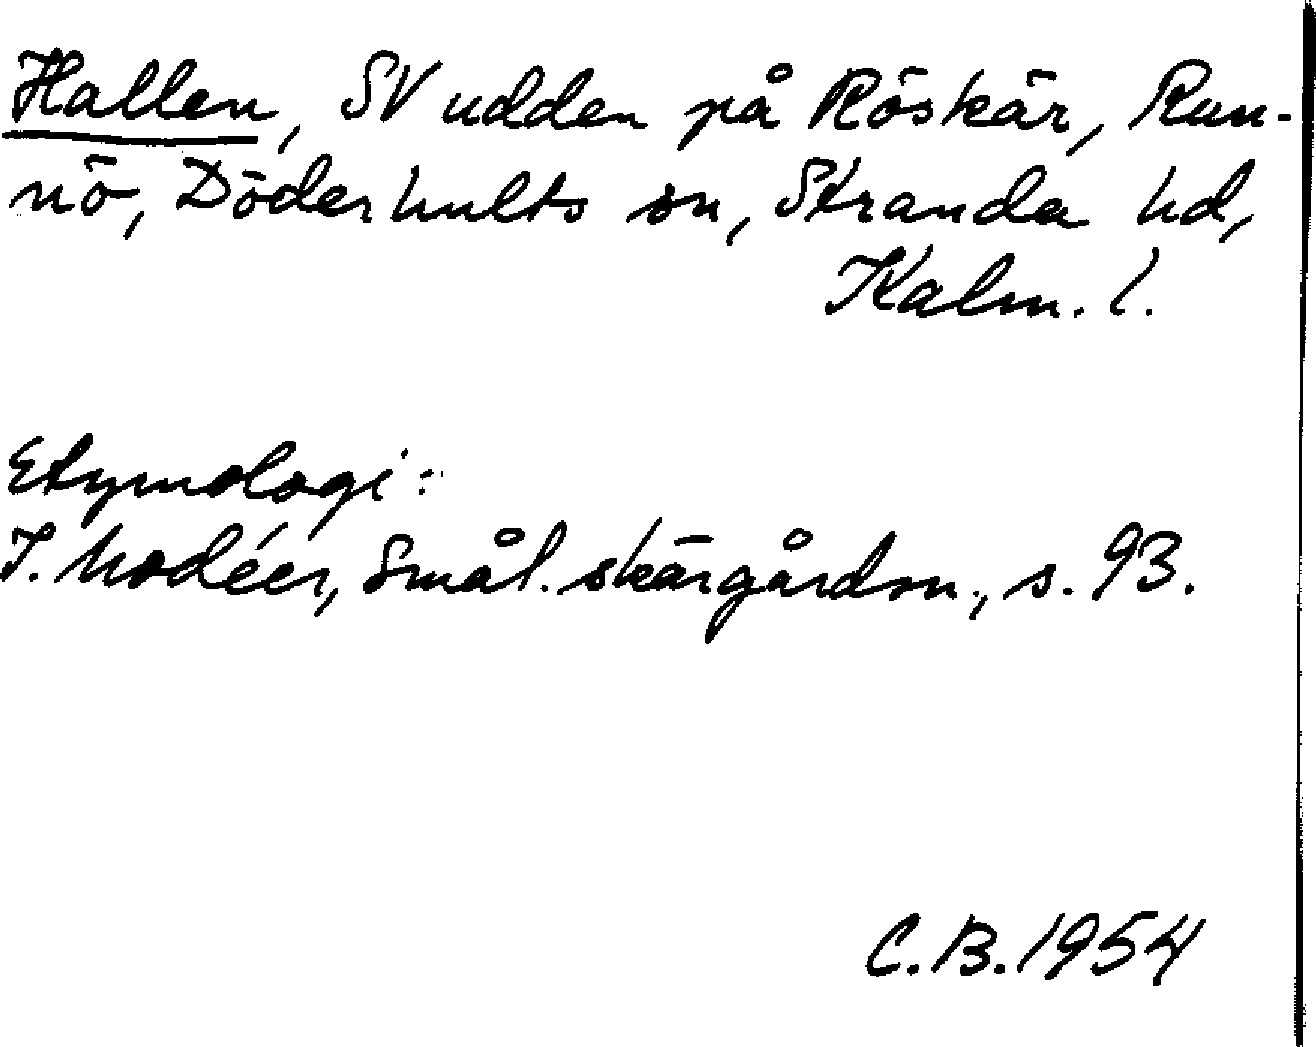 Hallen, SV udden på Röskär, Run-
nö, Döderhults sn, Stranda hd,
Kalm. l.
Etymologi:
I. Modéer, Smål. skärgårdsn., s. 93.
C.B. 1954